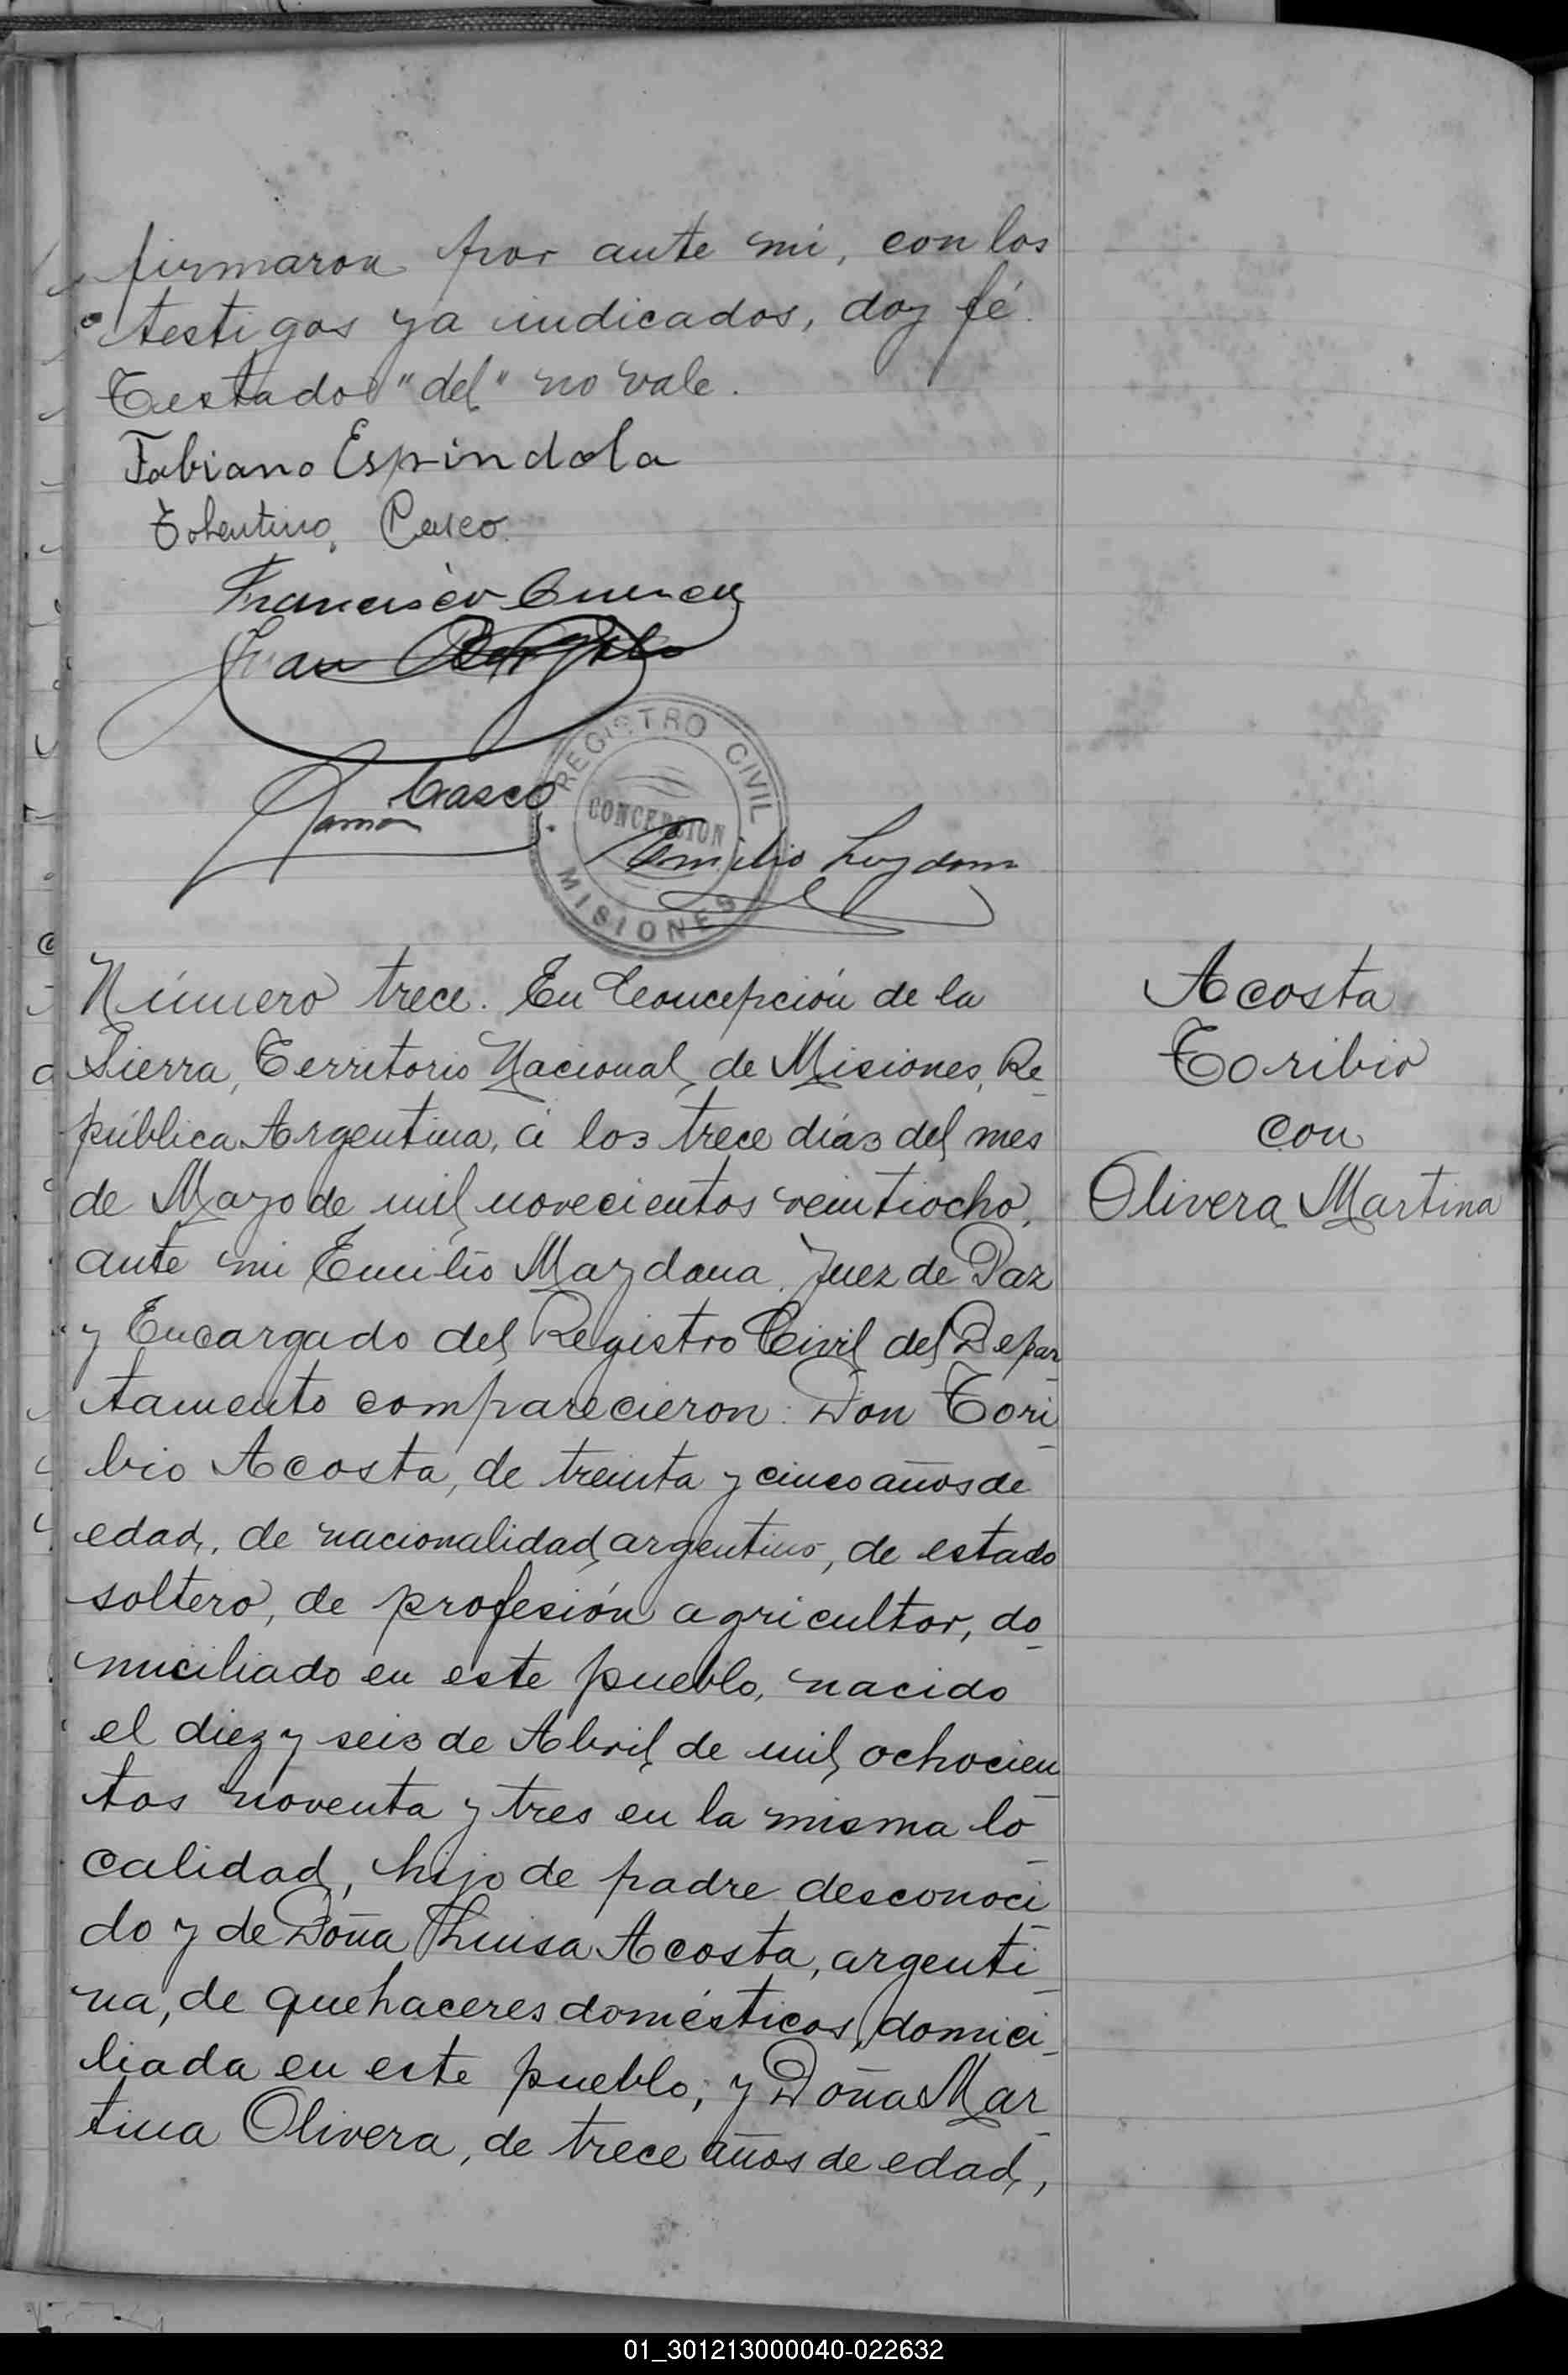 firmaron por ante mi, con los
testigos ya indicados, doy fé.
Testado "del" no vale.
Fabiano Espindola
Tolentino Casco
Francisco Cuenca
Juan
Ramon Casco
REGISTRO CIVIL
CONCEPCION
MISIONES
Emilio
Número trece. En Concepción de la
Sierra, Territorio Nacional de Misiones, Re-
pública Argentina, á los trece días del mes
de Mayo de mil novecientos veintiocho,
ante mi Emilio Maydana, Juez de Paz
y Encargado del Registro Civil del Depar-
tamento comparecieron: Don Tori-
bio Acosta, de treinta y cinco años de
edad, de nacionalidad argentino, de estado
soltero, de profesión agricultor, do-
miciliado en este pueblo, nacido
el diez y seis de Abril de mil ochocien-
tos noventa y tres en la misma lo-
calidad, hijo de padre desconoci-
do y de Doña Luisa Acosta, argenti-
na, de quehaceres domésticos, domici-
liada en este pueblo; y Doña Mar-
tina Olivera, de trece años de edad,
Acosta
Toribio
con
Olivera Martina
01_301213000040-022632